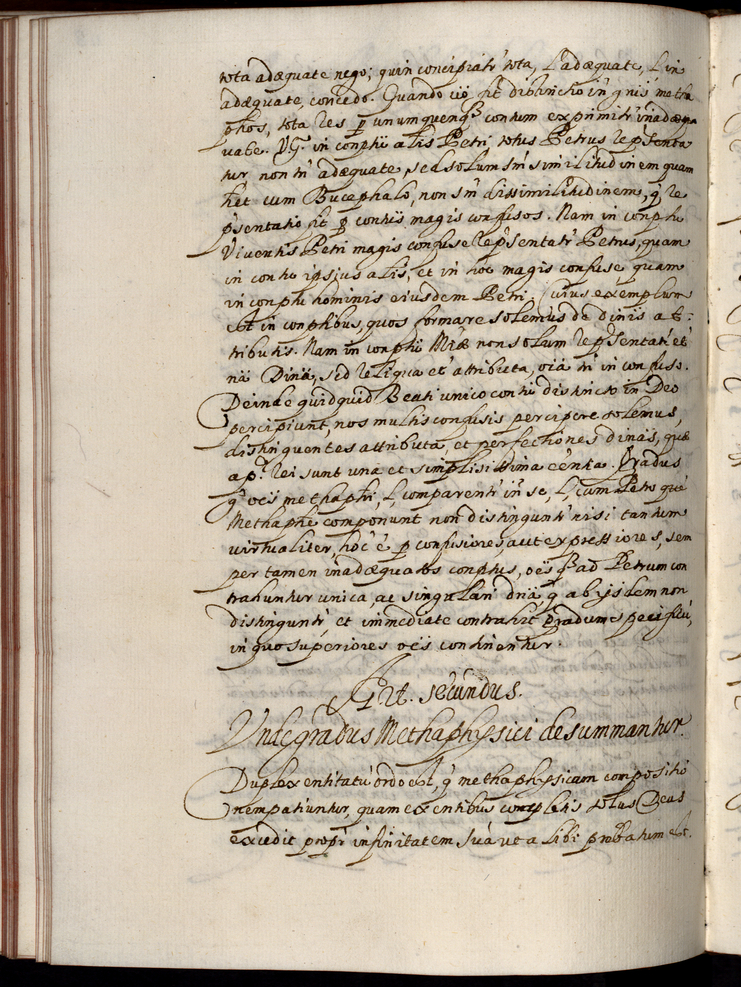 tota adæquate nego; quin concipiatr tota, l adæquate, l in
adæquate, concedo. Quando vo fit distinctio in gnis metha
phos, tota res p unumquemq contum exprimitr inadæqu
uate. V.G. in conptu alis Petri totus Petrus repsenta
tur non tn adæquate, sed solum sm similitudinem quam
het cum Bucephalo, non sm dissimilitudinem, q re
psentatio fit p contus magis confusos. Nam in conptu
Viventis Petri magis confuse repsentatr Petrus, quam
in contu ipsius alis, et in hoc magis confuse quam
in conptu hominis eiusdem Petri. Cuius exemplum
est in conptibus, quos formare solemus de dinis at:
tributis. Nam in conptu Miæ non solum repsentatr et
nã Dina, sed reliqua et attributa, oia tn in confuso.
Deinde quidquid Beati unico contu distincto in Deo
percipiunt, nos multis confusis percipere solemus,
distinguentes attributa et perfectiones dinas, quæ
a p. rei sunt una et simplisissima centia. Gradus
g oes methaphi, l, comparentr in se, l, cum Petro que
Methaphe componunt non distinguntr nisi tantum
virtualiter, hoc e p confusiores, aut expressiores, sem
per tamen inadæquatos conptus, oes ad Petrum con
trahuntur unica, ac singulari dria, q ab ijsdem non
distinguntr, et immediate contrahit gradum specificu,
in quo superiores oes continentur.
Art. secundus.
Unde gradus Methaphysici desummantur.
Duplex entitatu ordo est, q methaphysicam compositio
nem patiuntur, quam ex entibus completis solus Deus
excedit propr infinitatem suã ut alibi probatum est.